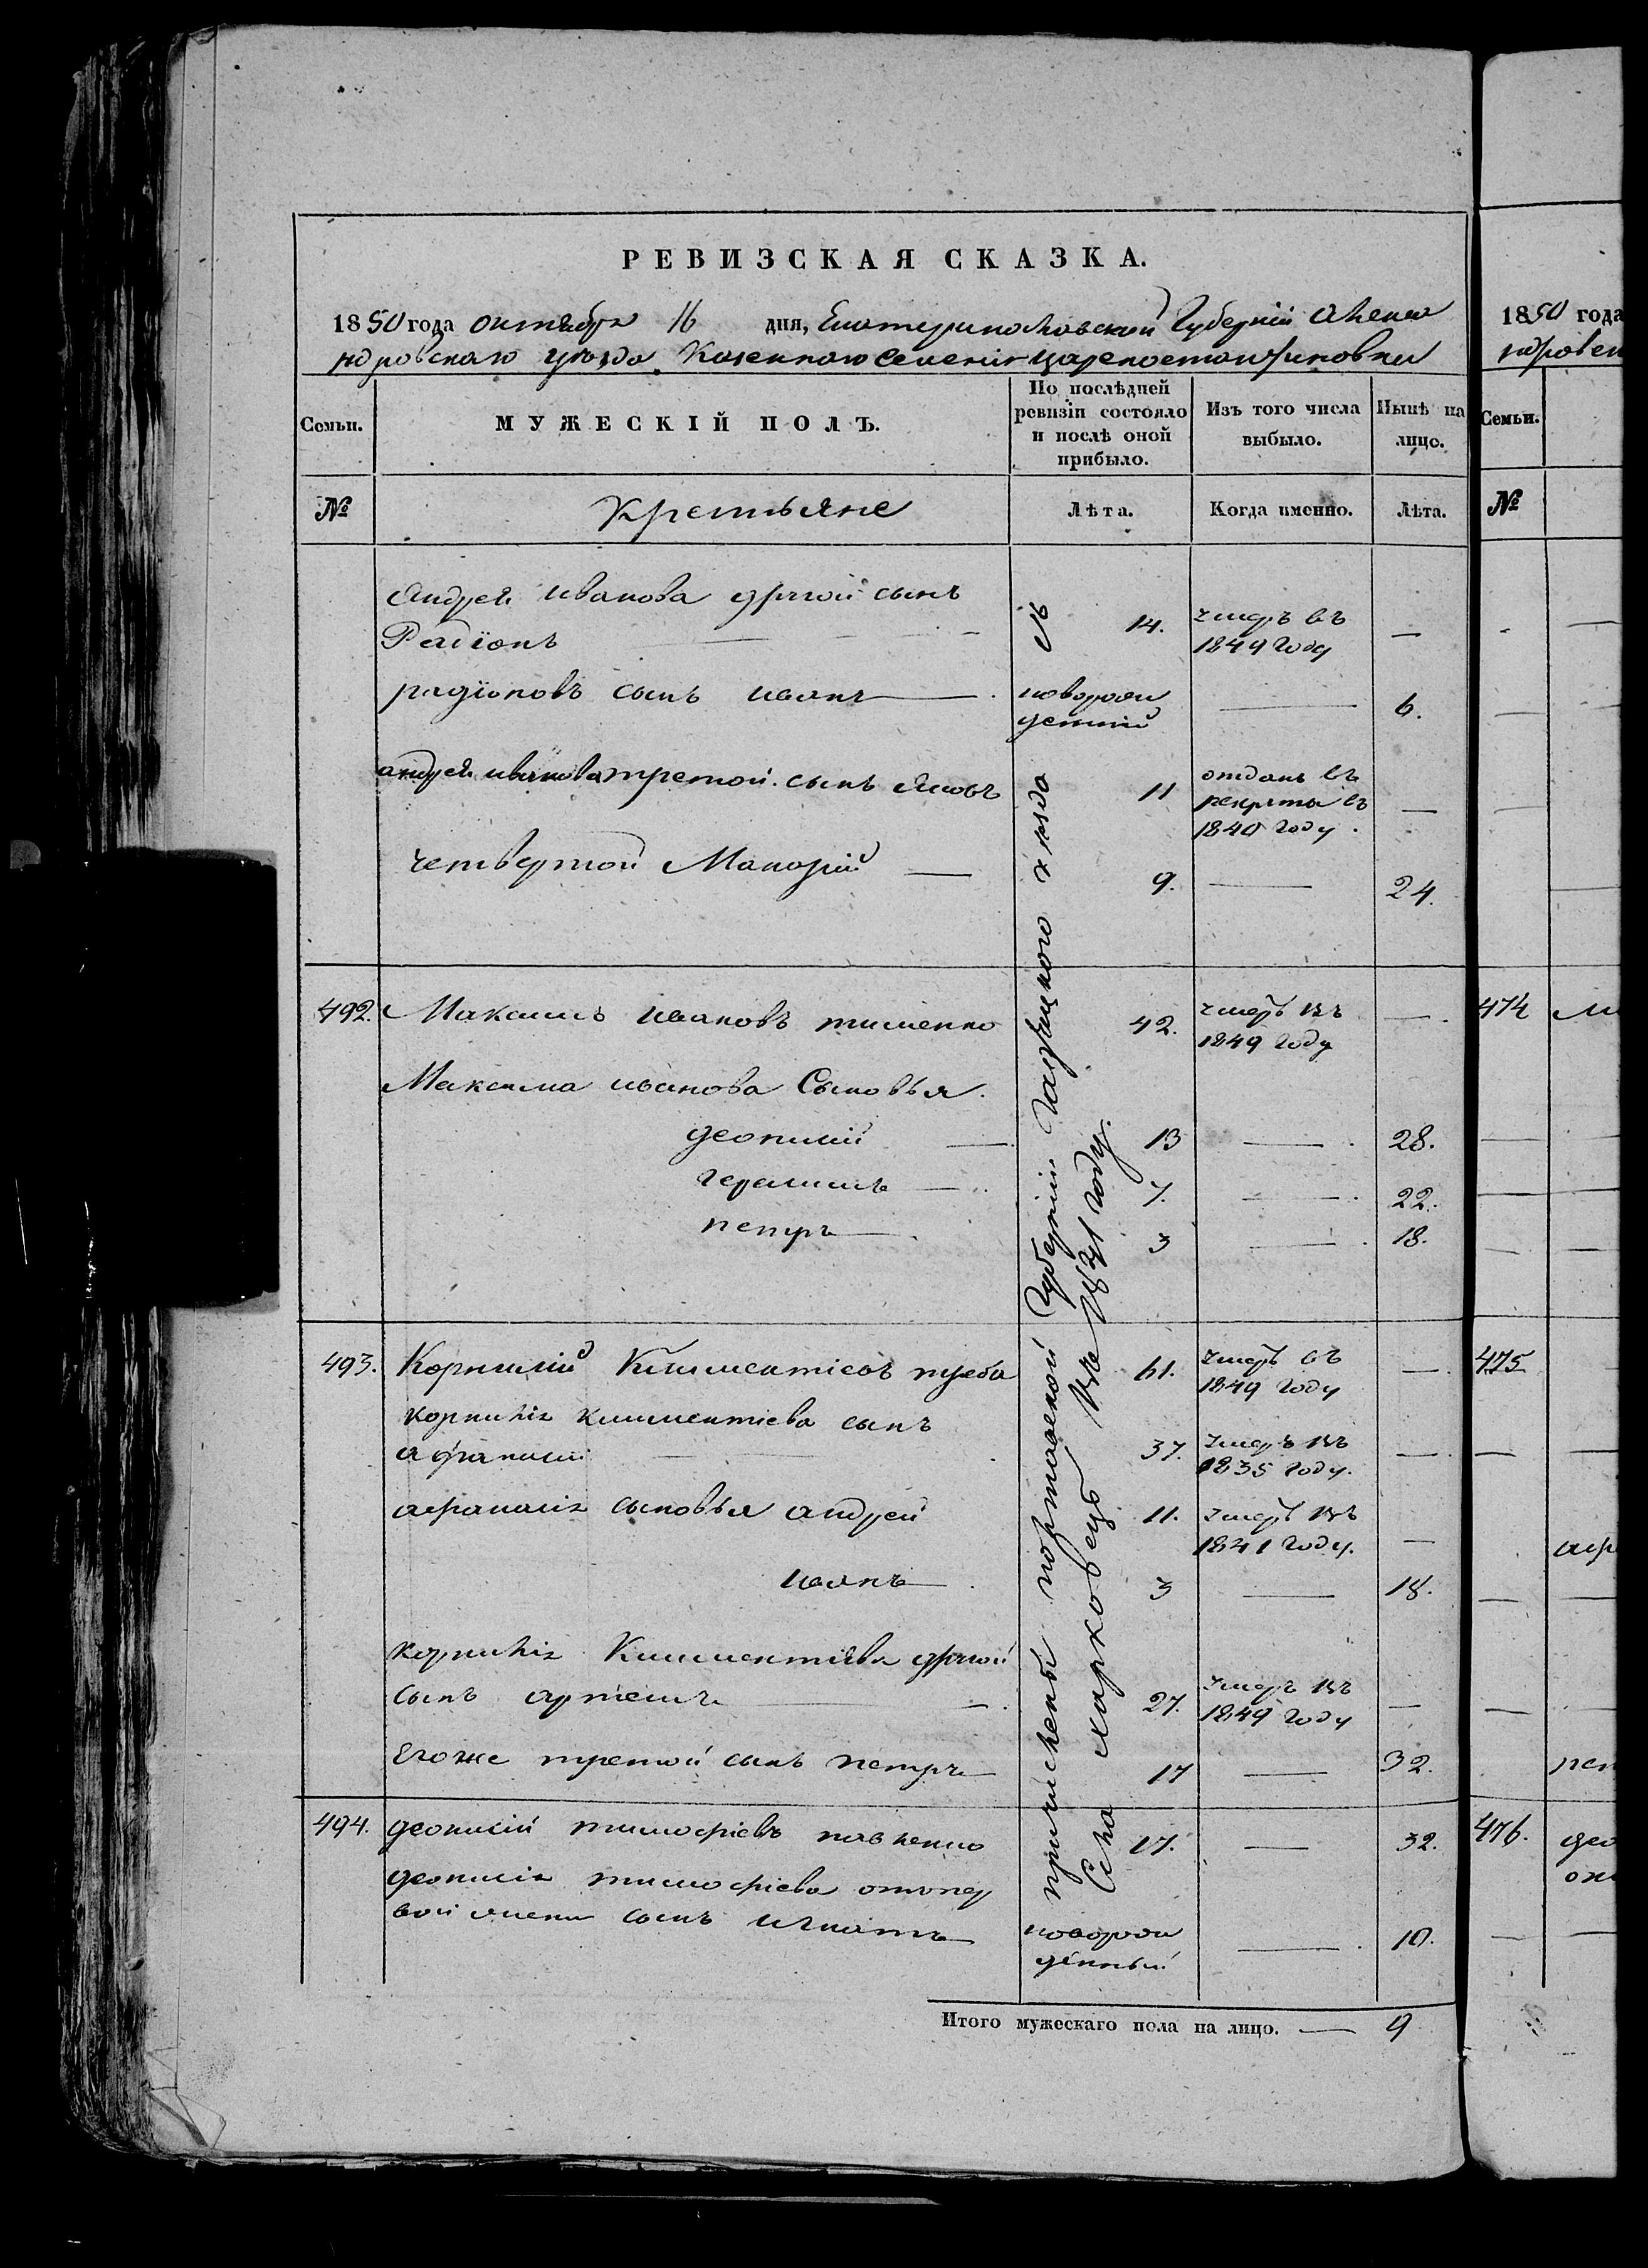 РЕВИЗСКАЯ СКАЗКА.
1850 года октября 16 дня, Екатеринославской Губерніи Алекса
ндровскаго уезда Казеннаго Селенія Цареконстантиновки
Семьи.
МУЖЕСКІЙ ПОЛЪ.
По послѣдней
ревизіи состояло
и послѣ оной
прибыло.
Изъ того числа
выбыло.
Нынѣ на
лицо.
№
Крестьяне
Лѣта.
Когда именно.
Лѣта.
Андрея иванова другой сынъ
Радіонъ
14.
умеръ въ
1849 году
—
радіоновъ сынъ иванъ
новорож
денний
—
6.
андрея иванова третой сынъ Яковъ
11
отданъ въ
рекруты въ
1840 году.
—
четвертой Макарій
9.
—
24.
492.
Максимъ ивановъ тименко
42.
умеръ въ
1849 году
—
Максима иванова Сыновья.
деонисій
13
—
28.
герасимъ
7.
—
22.
петръ
3
—
18.
493.
Корнилій Климентіевъ
61.
умеръ въ
1849 году
—
корнилія климентіева сынъ
афанасий
37.
умеръ въ
1835 году.
—
афанасія сыновья андрей
11.
умеръ въ
1841 году.
—
иванъ
3
—
18.
корнилія Климентиева другой
сынъ артемъ
27.
умеръ въ
1849 году
—
Егоже третой сынъ петръ
17
—
32.
494.
деонисій тимофіевъ павленко
17.
—
32.
деонисія тимофіева отпер
вой жени сынъ игнатъ
новорож
денный
—
10.
причислены полтавской Губерніи Гадяцкого уезда
Села харковецъ въ 1831 году.
Итого мужескаго пола на лицо. — 9
1850 года
ндровск
Семьи.
№
474
475
476.